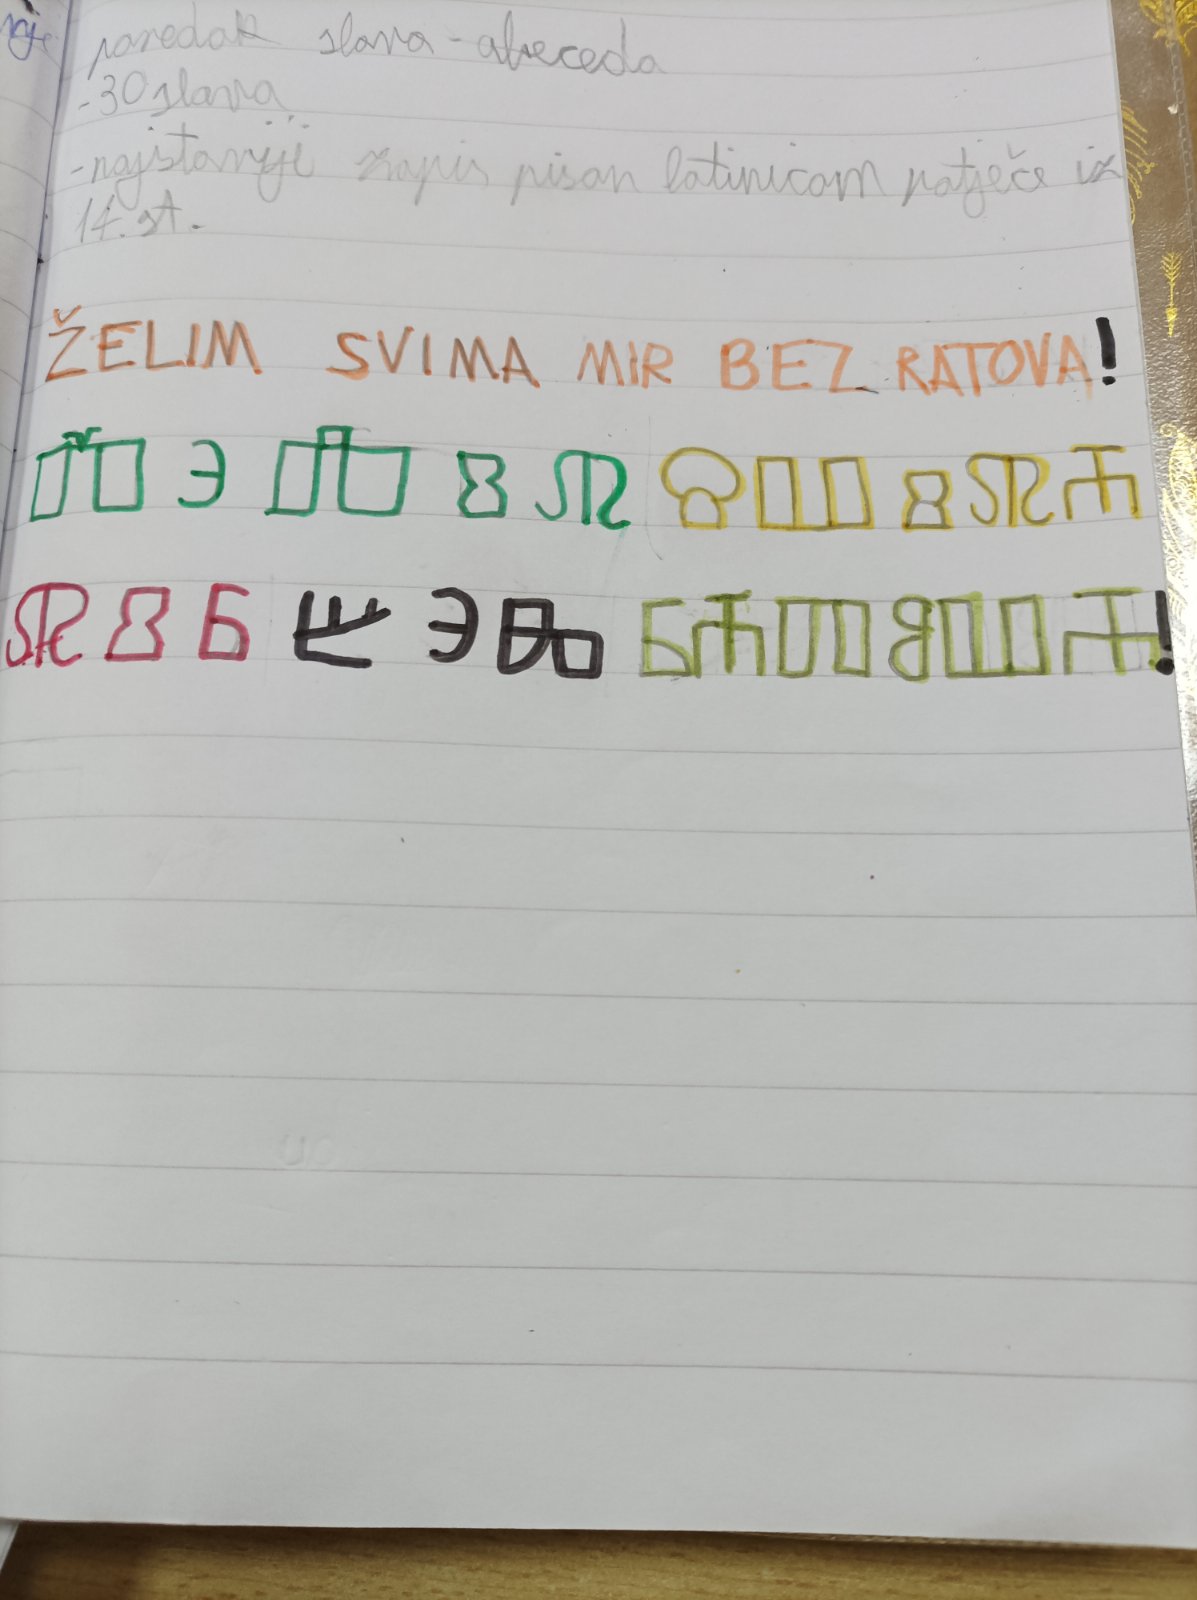 poredak slova - abeceda
- 30 slova
- najstariji zapis pisan latinicom potječe iz
14. st.
ŽELIM SVIMA MIR BEZ RATOVA!
ⰆⰅⰎⰊⰏ ⰔⰂⰊⰏⰀ
ⰏⰊⰓ ⰁⰅⰈ ⰓⰀⰕⰑⰂⰀ!